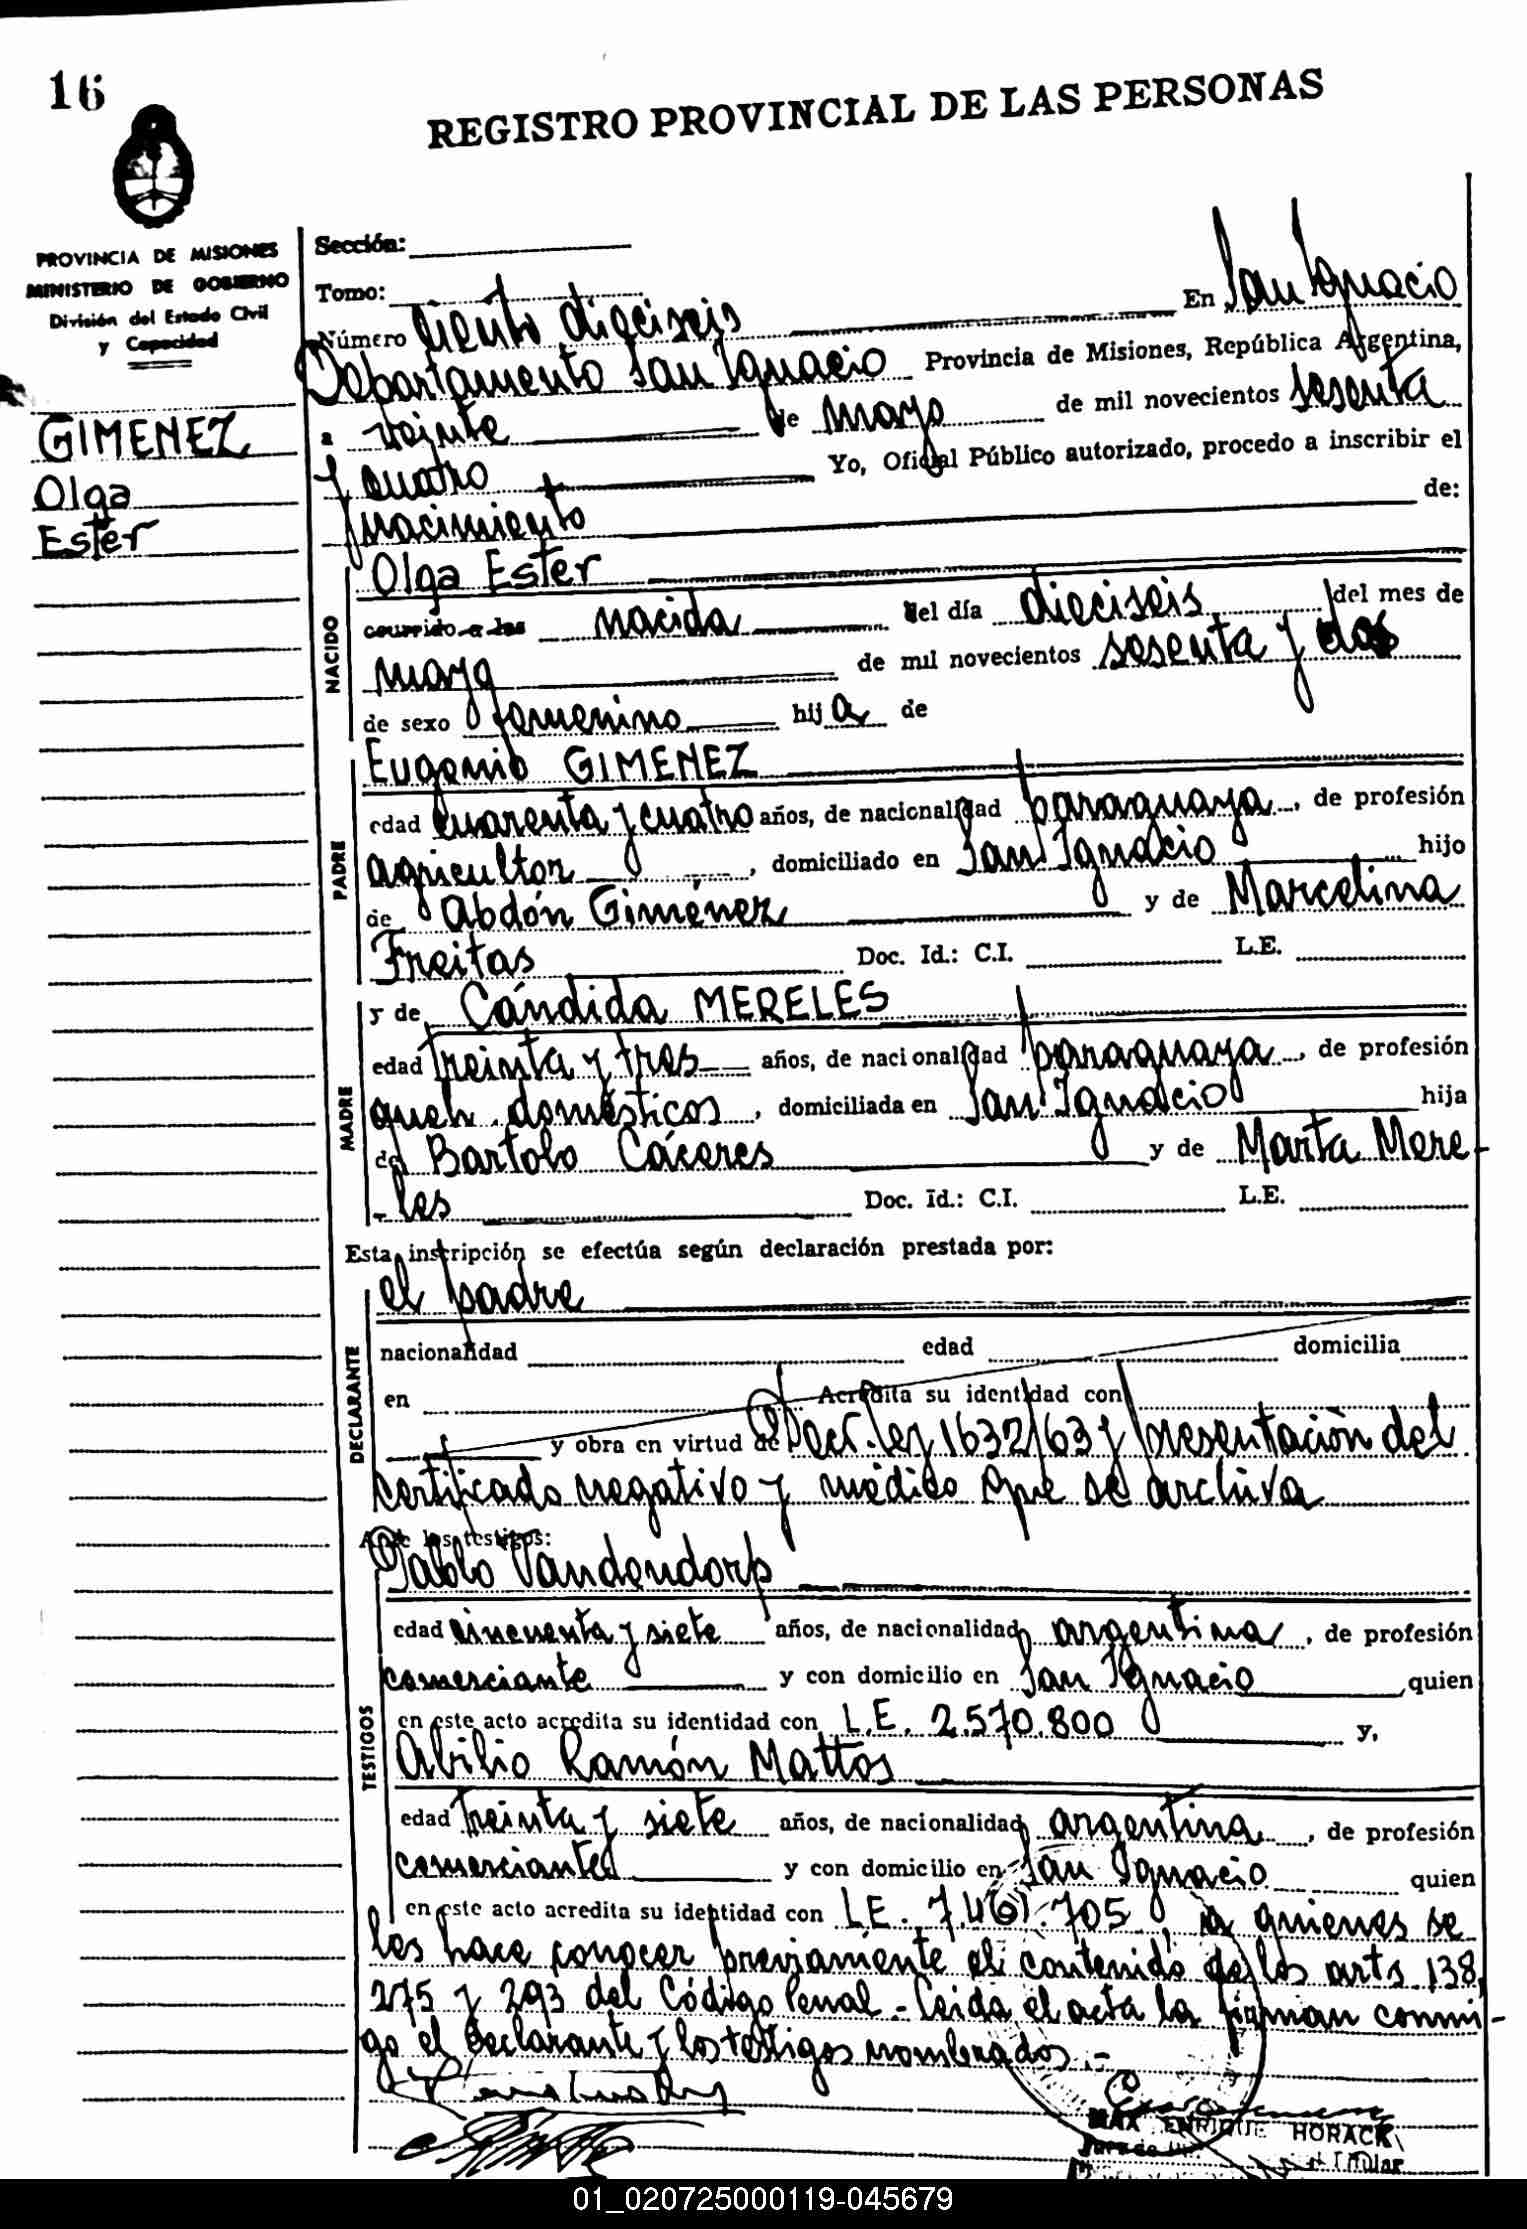 16
REGISTRO PROVINCIAL DE LAS PERSONAS
PROVINCIA DE MISIONES
MINISTERIO DE GOBIERNO
División del Estado Civil
y Capacidad
GIMENEZ
Olga
Ester
Sección:
Tomo:
Número Ciento dieciseis En San Ignacio
Departamento San Ignacio Provincia de Misiones, República Argentina,
a veinte de mayo de mil novecientos sesenta
y cuatro Yo, Oficial Público autorizado, procedo a inscribir el
nacimiento de:
NACIDO
Olga Ester
ocurrido a las nacida del día dieciseis del mes de
mayo de mil novecientos sesenta y dos
de sexo femenino hija de
PADRE
Eugenio GIMENEZ
edad cuarenta y cuatro años, de nacionalidad paraguaya, de profesión
agricultor, domiciliado en San Ignacio hijo
de Abdón Giménez y de Marcelina
Freitas Doc. Id.: C.I. L.E.
MADRE
y de Cándida MERELES
edad treinta y tres años, de nacionalidad paraguaya, de profesión
queh. domésticos, domiciliada en San Ignacio hija
de Bartolo Cáceres y de Marta Mere-
-les Doc. Id.: C.I. L.E.
Esta inscripción se efectúa según declaración prestada por:
DECLARANTE
el padre
nacionalidad edad domicilia
en Acredita su identidad con
y obra en virtud de Decr. ley 1632/63 y presentación del
certificado negativo y médico que se archiva
Ante los testigos:
TESTIGOS
Pablo Vandendorp
edad cincuenta y siete años, de nacionalidad argentina, de profesión
comerciante y con domicilio en San Ignacio quien
en este acto acredita su identidad con L.E. 2.570.800 y,
Abilio Ramón Mattos
edad treinta y siete años, de nacionalidad argentina, de profesión
comerciante y con domicilio en San Ignacio quien
en este acto acredita su identidad con L.E. 7.461.705 a quienes se
les hace conocer previamente el contenido de los arts. 138,
275 y 293 del Código Penal.- Leida el acta la firman conmi-
go el declarante y los testigos nombrados.-
MAX ENRIQUE HORACK
Titular
01_020725000119-045679